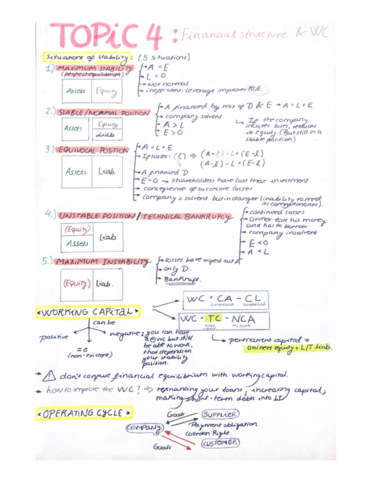 TOPIC 4: Financial structure & WC
Situations of stability: (5 situations)
1.) MAXIMUM STABILITY
(Perfect equilibrium)
Assets
Equity
A = E
L = 0
Not normal
inefficient: leverage improves ROE.
2.) STABLE/NORMAL POSITION
Assets
Equity
Liab.
A financed by mix of D & E → A = L+E
company solvent
A > L
E > 0
If the company incurs loses, reduces its equity. (But still in a stable position)
3.) EQUIVOCAL POSITION
Assets
Liab.
A = L + E
If losses: (ℓ) ⇒ (A-ℓ) = L+(E-ℓ)
(A-ℓ) = L+(E-ℓ)
A financed D
E=0 → shareholders have lost their investment
consequence of successive losses
Company is solvent but in danger (inability to meet its commitments).
4.) UNSTABLE POSITION / TECHNICAL BANKRUPCY
(Equity)
Assets
Liab.
continued losses
owner lost his money and has to borrow
company insolvent
E < 0
A = L
5.) MAXIMUM INSTABILITY
(Equity)
Liab.
losses have wiped out
only D.
Bankrupt
WORKING CAPITAL
can be
positive
= 0
(non-existent)
negative: you can have
WC but still
be able to work,
that depends on
your stability
position.
WC = CA - CL
WC = TC - NCA
permanent capital =
owners equity + L/T Liab.
don't confuse financial equilibrium with working capital.
how to improve the WC? ⇒ refinancing your loans, increasing capital,
making short-term debts into LT
OPERATING CYCLE
Goods
SUPPLIER
COMPANY
Payment obligation
Collection Right
Goods
CUSTOMER